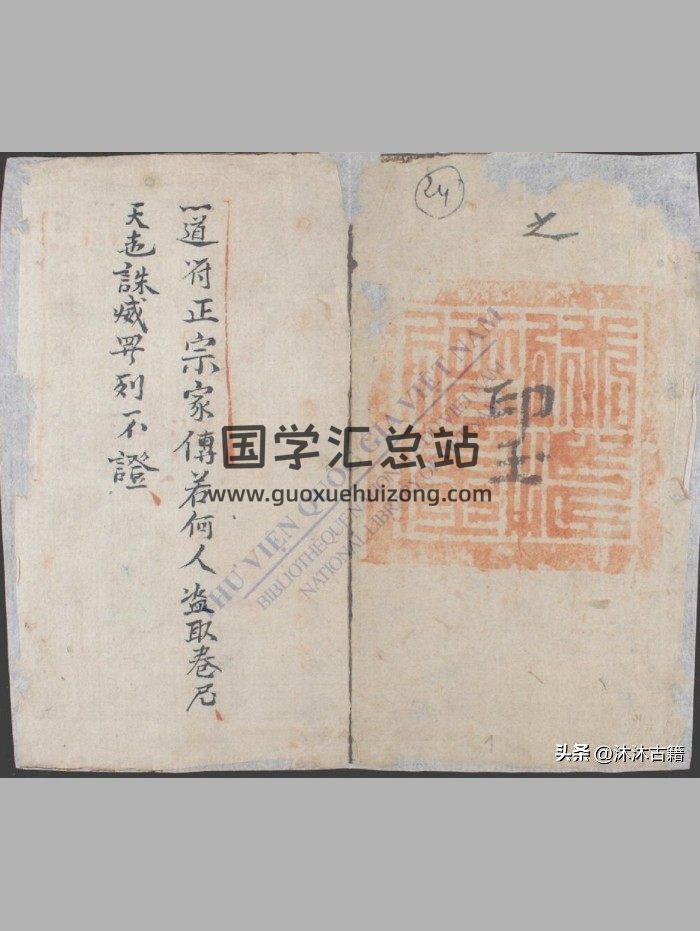 24
之
印玉
道符正宗家傳若何人盜取卷
天誅滅列不證
THƯ VIỆN QUỐC GIA VIỆT NAM
BIBLIOTHEQUE NATIONALE VIETNAM
NATIONAL LIBRARY OF VIETNAM
国学汇总站
www.guoxuehuizong.com
1
头条 @沐沐古籍